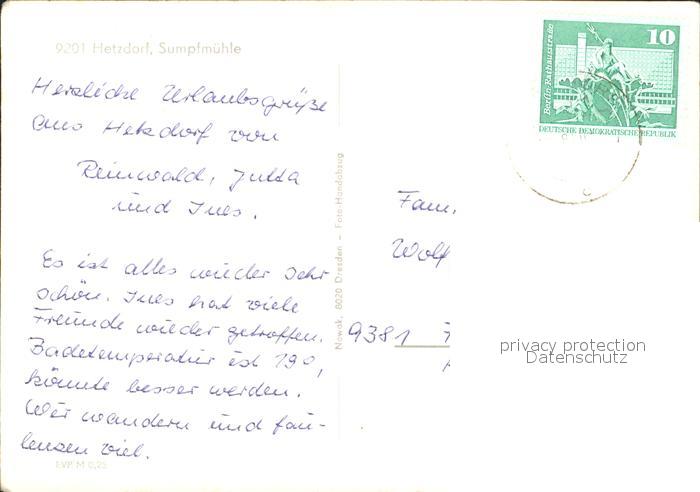 9201 Hetzdorf, Sumpfmühle
Herzliche Urlaubsgrüße
aus Hetzdorf von
Reinwald, Jutta
und Ines.
Es ist alles wieder sehr
schön. Ines hat viele
Freunde wieder getroffen.
Badetemperatur ist 19°,
könnte besser werden.
Wir wandern und fau-
lenzen viel.
EVP M 0,25
Nowak, 8020 Dresden – Foto-Handabzug
10
Berlin-Rathausstraße
DEUTSCHE DEMOKRATISCHE REPUBLIK
Fam.
Wolf
9381
privacy protection
Datenschutz